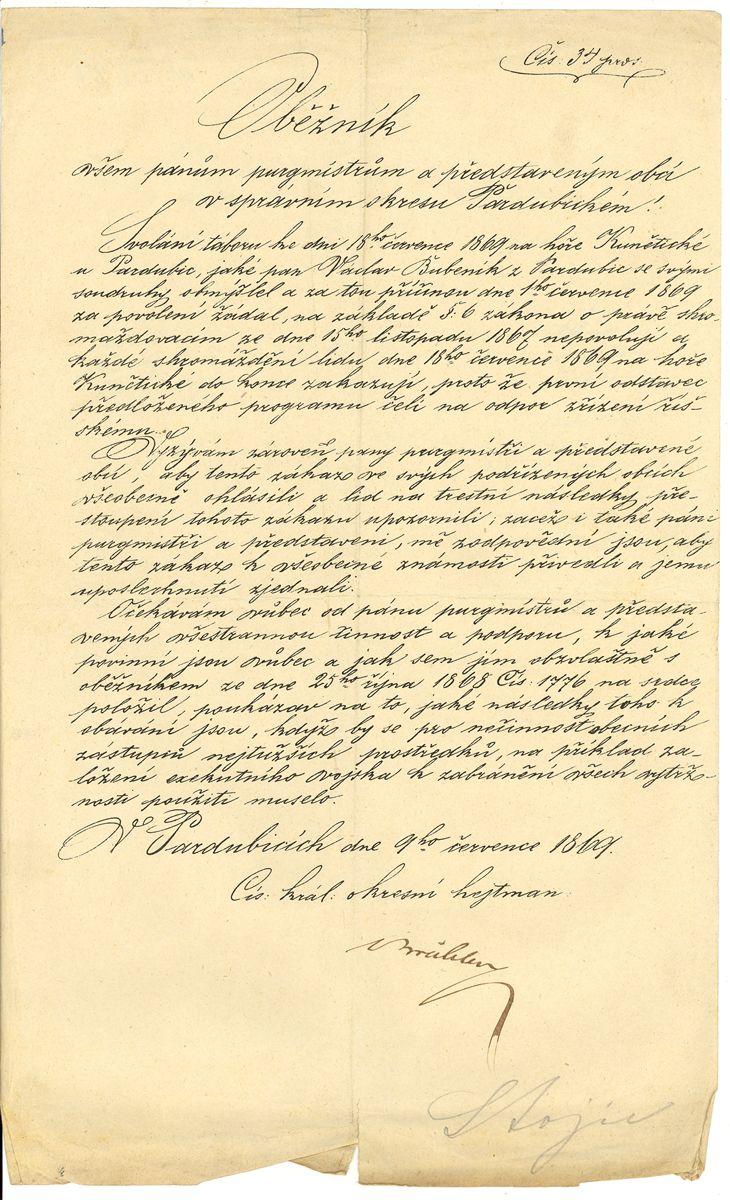 Čís: 34 praes:
Oběžník
všem pánům purgmistrům a představeným obcí
v správním okresu Pardubickém!
Svolání táboru ke dni 18ho července 1869 na hoře Kunětické
u Pardubic, jaké pan Václav Bubeník z Pardubic se svými
soudruhy obmýšlel a za tou příčinou dne 1ho července 1869
za povolení žádal, na základě §. 6 zákona o právě shro-
mažďovacím ze dne 15ho listopadu 1867 nepovoluji a
každé shromáždění lidu dne 18ho července 1869 na hoře
Kunětické do konce zakazuji, proto že první odstavec
předloženého programu čelí na odpor zřízení říš-
skému.
Vyzývám zároveň pany purgmistři a představené
obcí, aby tento zákaz ve svých podřízených obcích
všeobecně ohlásili a lid na trestní následky pře-
stoupení tohoto zákazu upozornili; začež i také páni
purgmistři a představení, mě zodpovědní jsou, aby
tento zákaz k všeobecné známosti přivedli a jemu
uposlechnutí zjednali.
Očekávám vůbec od pánu purgmistrů a předsta-
vených všestrannou činnost a podporu, k jaké
povinní jsou vůbec a jak sem jim obzvlaštně s
oběžníkem ze dne 25ho října 1868 Čís. 1776 na srdce
položil, poukázav na to, jaké následky toho k
obávání jsou, když by se pro nečinnost obecních
zástupců nejtužších prostředků, na příklad za-
ložení exekutního vojska k zabránění všech vytrž-
ností použiti muselo.
V Pardubicích dne 9ho července 1869.
Cís: král: okresní hejtman:
Stojic